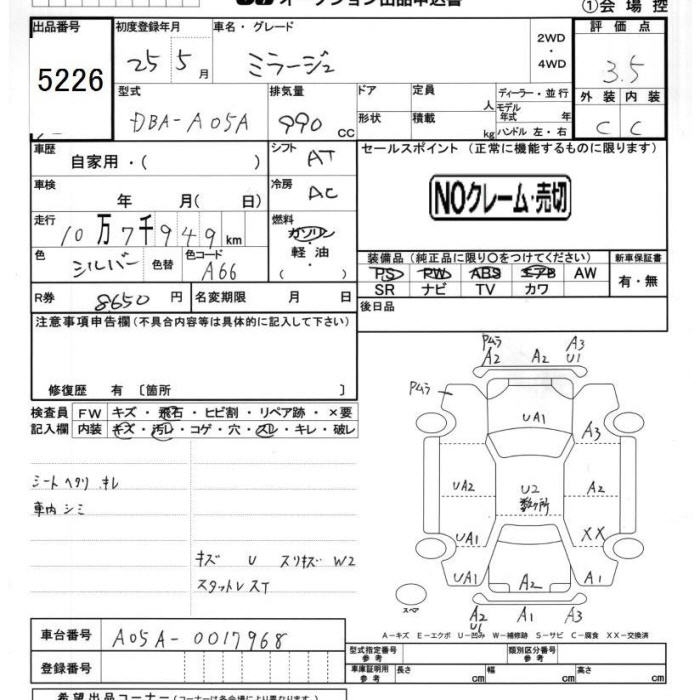 オークション出品申込書 ①会場控
出品番号 初度登録年月 車名・グレード 評価点
5226 25 5月 ミラージュ 2WD・4WD 3.5
型式 排気量 ドア 定員 人 ディーラー・並行 外装 内装
DBA-A05A 990 cc 形状 積載 kg モデル年式 年 ハンドル 左・右 C C
車歴 自家用・( ) シフト AT セールスポイント (正常に機能するものに限ります)
車検 年 月( 日) 冷房 AC NOクレーム・売切
走行 10万7千949km 燃料 ガソリン 軽油・( )
色 シルバー 色替 色コード A66 装備品 (純正品に限り〇をつけてください) 新車保証書
PS PW ABS エアB AW 有・無
R券 8650円 名変期限 月 日 SR ナビ TV カワ
注意事項申告欄(不具合内容等は具体的に記入して下さい) 後日品
修復歴 有〔箇所 〕
検査員 FW キズ・飛石・ヒビ割・リペア跡・×要
記入欄 内装 キズ・汚レ・コゲ・穴・スレ・キレ・破レ
シートヘタリ キレ
車内シミ
キズ U スリキズ W2
スタットレスT
Pムラ A2 A2 A3 U1
Pムラ UA1 A3
UA2 U2 数ヶ所 A2
UA1 XX
UA1 A2 A1
スペア A2 U1 A1 A3
A-キズ E-エクボ U-凹み W-補修跡 S-サビ C-腐食 XX-交換済
車台番号 A05A-0017968
型式指定番号 参考 類別区分番号 参考
登録番号 車庫証明用 参考 長さ cm 幅 cm 高さ cm
希望出品コーナー(コーナーは各会場により異なります)